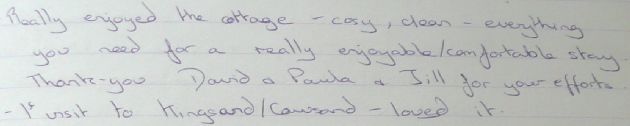 Really enjoyed the cottage - cosy, clean - everything
you need for a really enjoyable/comfortable stay.
Thank-you David & Paula & Jill for your efforts.
- 1st visit to Kingsand/Cawsand - loved it.